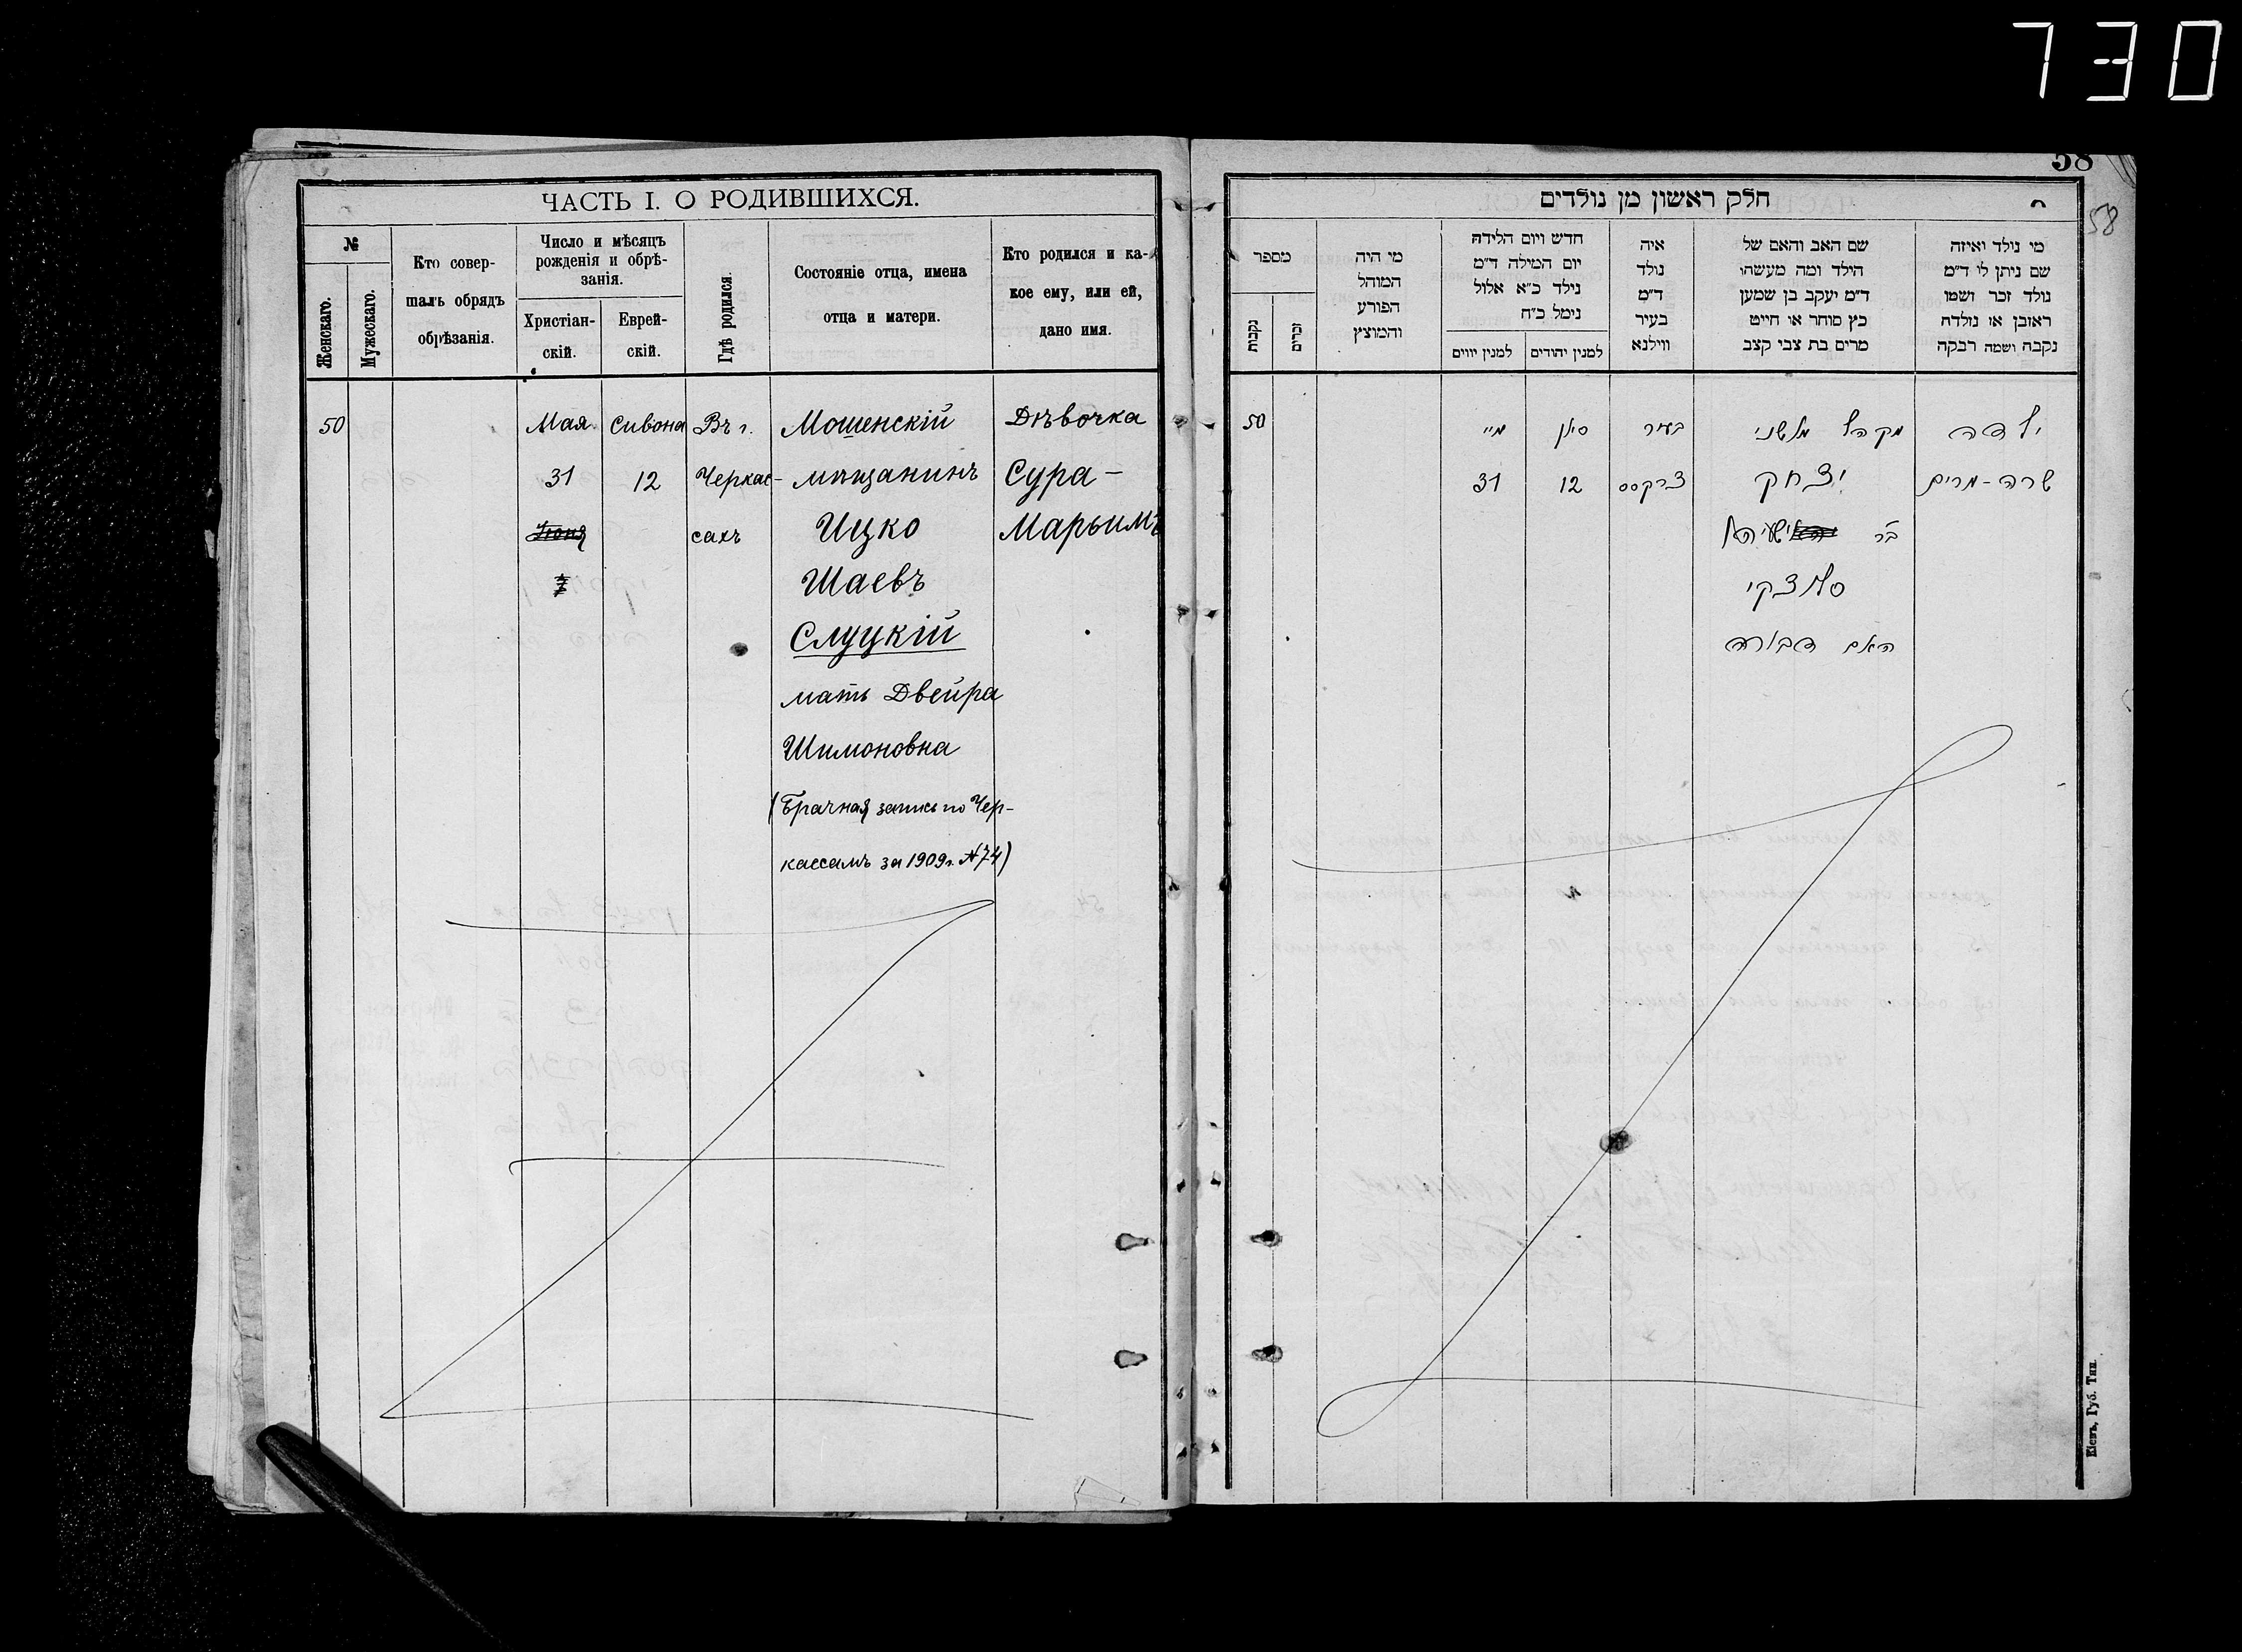 730
ЧАСТЬ I. О РОДИВШИХСЯ.
№
Женскаго.
Мужескаго.
Кто совер-
шалъ обрядъ
обрѣзанія.
Число и мѣсяцъ
рожденія и обрѣ-
занія.
Христіан-
скій.
Еврей-
скій.
Гдѣ родился.
Состояніе отца, имена
отца и матери.
Кто родился и ка-
кое ему, или ей,
дано имя.
50 Мая Сивона Въ г. Мошенскій Дѣвочка
31 12 Черкас- мѣщанинъ Сура-
Іюня сахъ Ицко Марьимъ
7 Шаевъ
Слуцкій
мать Двейра
Шимоновна
(Брачная запись по Чер-
кассамъ за 1909г. №74)
58
58
חלק ראשון מן נולדים
מספר
נקבות
זכרים
מי היה
המוהל
הפורע
והמוצץ
חדש ויום הלידה
יום המילה ד״מ
נילד כ״א אלול
נימל כ״ח
למנין יווים
למנין יהודים
איה
נולד
ד״מ
בעיר
ווילנא
שם האב והאם של
הילד ומה מעשהו
ד״מ יעקב בן שמען
כץ סוחר או חייט
מרים בת צבי קצב
מי נילד ואיזה
שם ניתן לו ד״מ
נולד זכר ושמו
ראובן או נולדה
נקבה ושמה רבקה
ילדה מקהל בעיר סיון מיי 50
שרה-מרים יצחק צרקסס 12 31
ב״ר ישעיהו
סלוצקי
האם דבורה
Кіевъ, Губ. Тип.